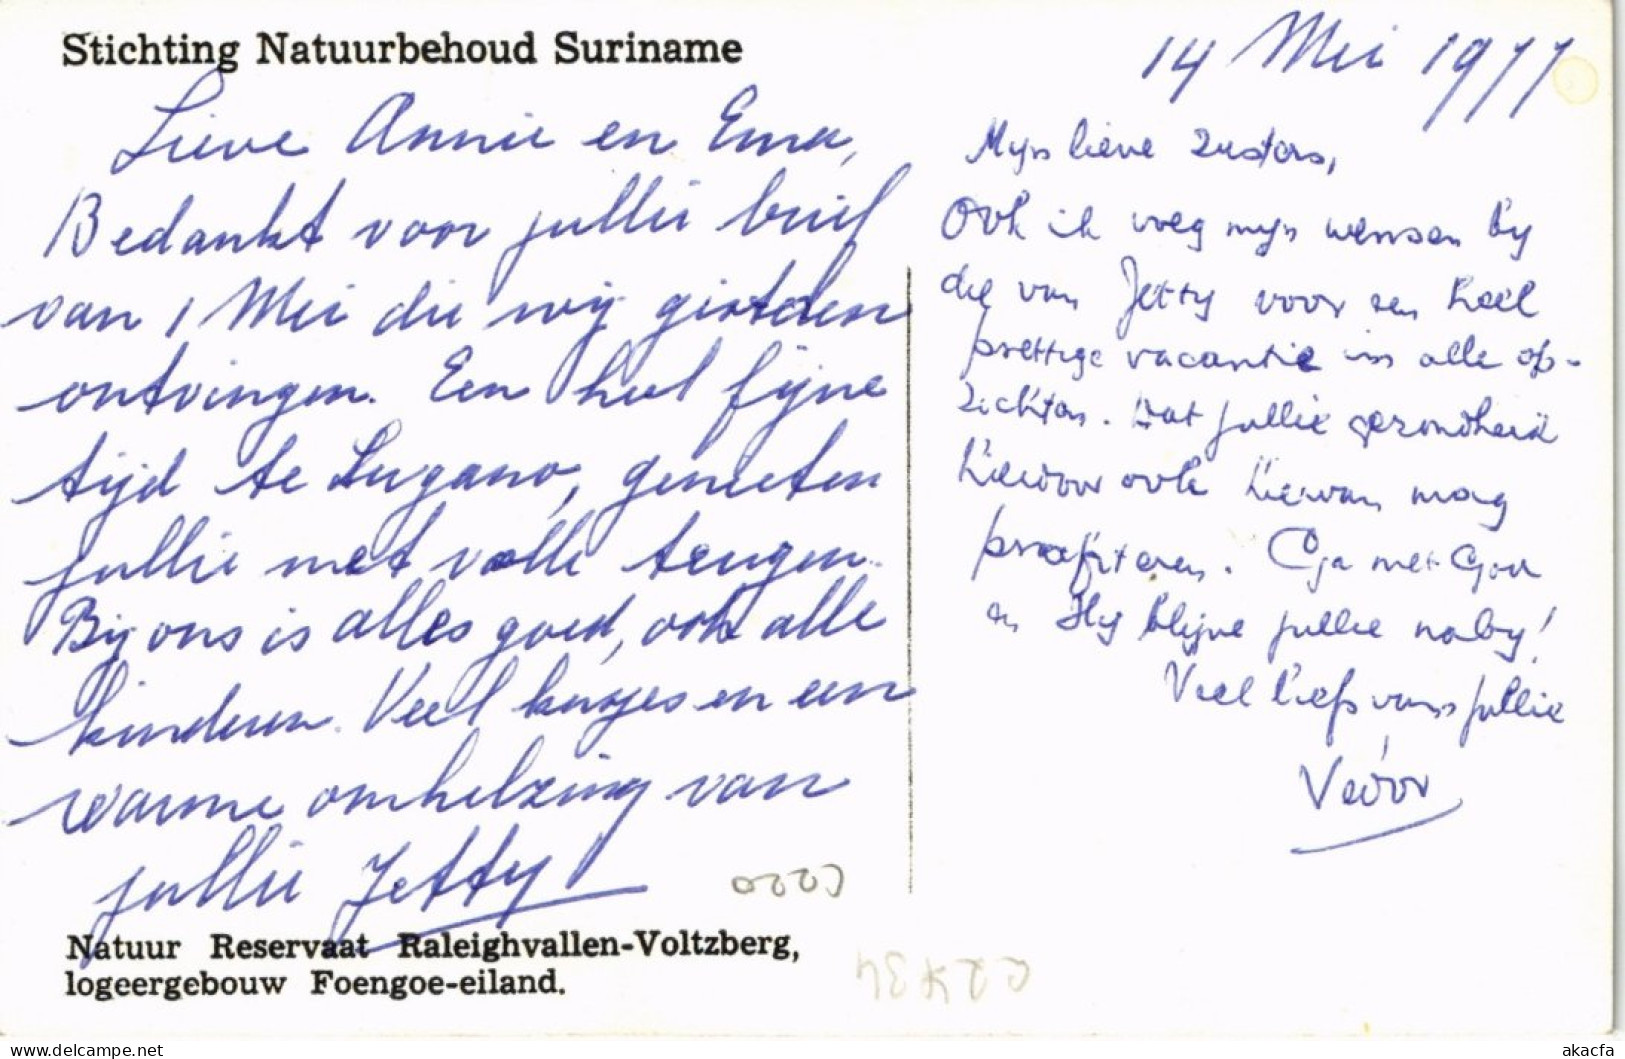 Stichting Natuurbehoud Suriname
14 Mei 1977
Lieve Annie en Ema,
Bedankt voor jullie brief
van 1 Mei die wij gisteren
ontvingen. Een heel fijne
tijd te Lugano, genieten
jullie met volle teugen.
Bij ons is alles goed, ook alle
kinderen. Veel kusjes en een
warme omhelzing van
jullie Jetty
Natuur Reservaat Raleighvallen-Voltzberg,
logeergebouw Foengoe-eiland.
Mijn lieve zusters,
Ook ik voeg mijn wensen bij
die van Jetty voor een heel
prettige vacantie in alle op-
zichten. Dat jullie gezondheid
hierdoor ook hiervan mag
profiteren. Ga met God
en Hij blijve jullie nabij!
Veel liefs van jullie
akacfa
www.delcampe.net